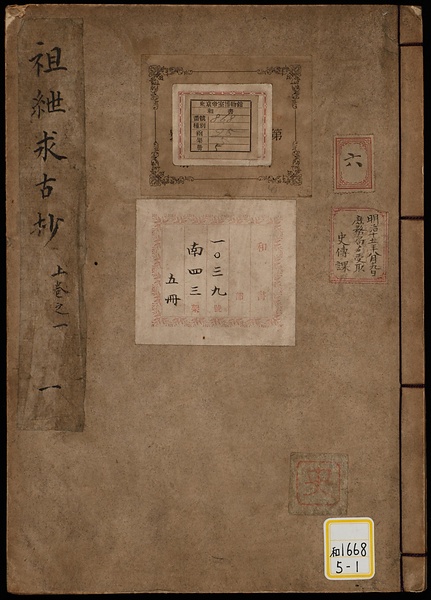 祖紲求古抄
上巻之一
一
東京帝室博物館
和書
868
15
5
第
印
書
一〇三九
号
南四三
第
五冊
六
明治十五年八月五日
史傳課
和1668
5-1